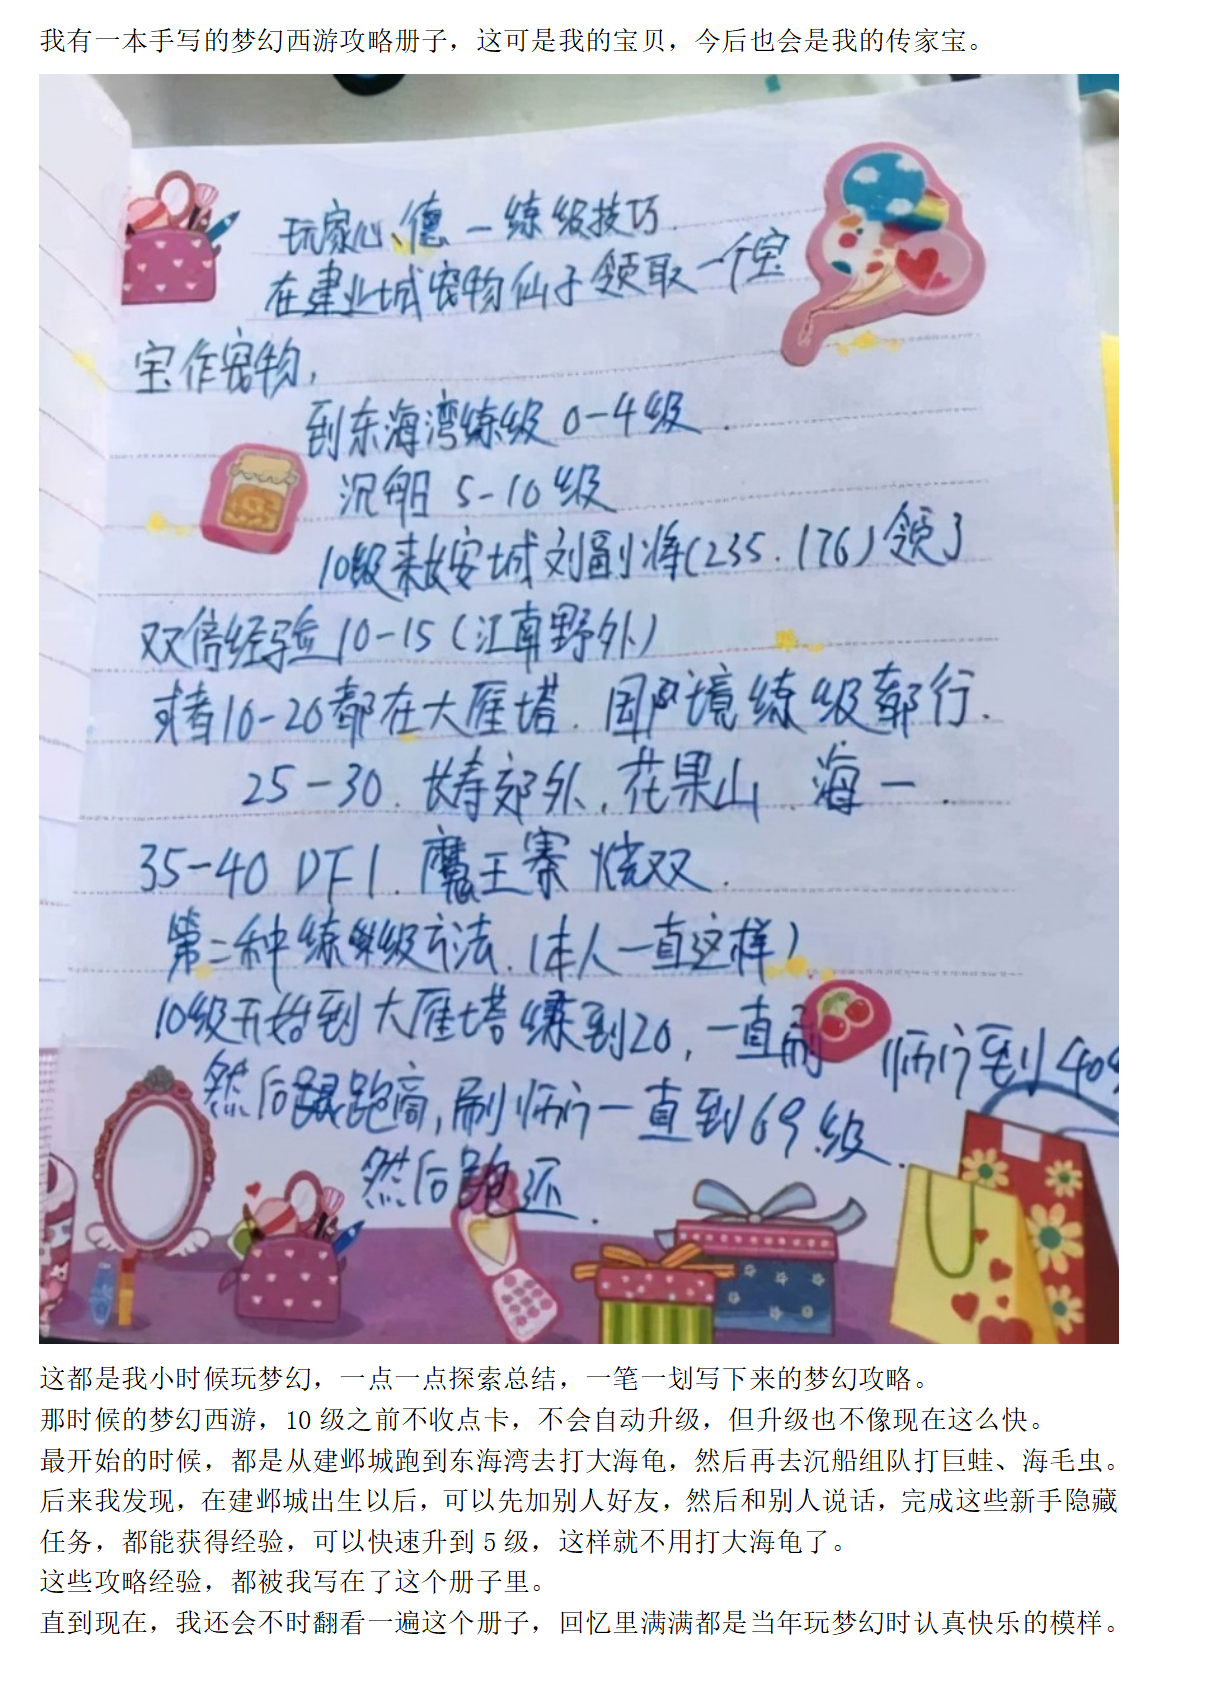 我有一本手写的梦幻西游攻略册子，这可是我的宝贝，今后也会是我的传家宝。
玩家心德－练级技巧
在建业城宠物仙子领取一个宝
宝作宠物，
到东海湾练级 0-4级．
沉船 5-10级
10级来长安城刘副将(235.176)领了
双倍经验10-15(江南野外)
或者10-20都在大雁塔．国境练级都行．
25-30．长寿郊外．花果山 海一．
35-40 DF1．魔王寨 烧双．
第二种练级方法．(本人一直这样)
10级开始到大雁塔练到20，一直刷 师门到40
然后跟跑商，刷师门一直到69.级．
然后跑还．
这都是我小时候玩梦幻，一点一点探索总结，一笔一划写下来的梦幻攻略。
那时候的梦幻西游，10级之前不收点卡，不会自动升级，但升级也不像现在这么快。
最开始的时候，都是从建邺城跑到东海湾去打大海龟，然后再去沉船组队打巨蛙、海毛虫。
后来我发现，在建邺城出生以后，可以先加别人好友，然后和别人说话，完成这些新手隐藏
任务，都能获得经验，可以快速升到5级，这样就不用打大海龟了。
这些攻略经验，都被我写在了这个册子里。
直到现在，我还会不时翻看一遍这个册子，回忆里满满都是当年玩梦幻时认真快乐的模样。